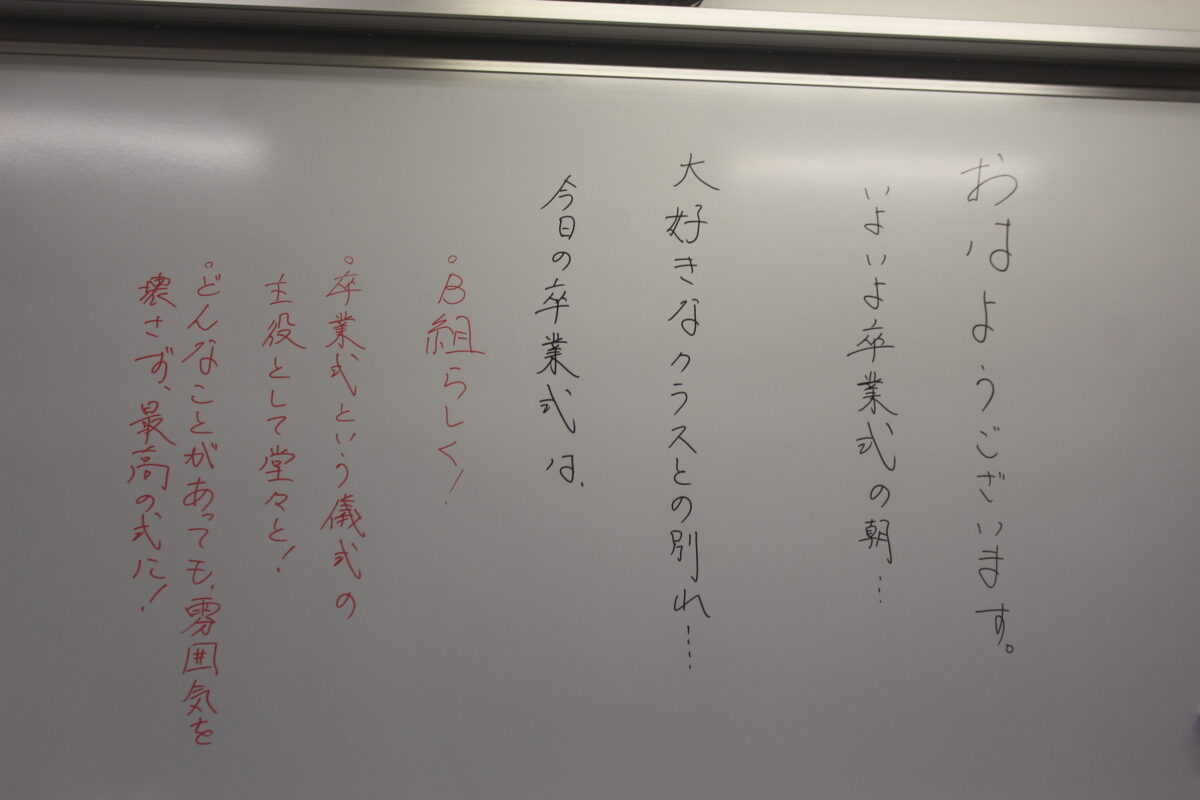 おはようございます。
いよいよ卒業式の朝…
大好きなクラスとの別れ……
今日の卒業式は、
・B組らしく!
・卒業式という儀式の
主役として堂々と!
・どんなことがあっても、雰囲気を
壊さず、最高の式に!